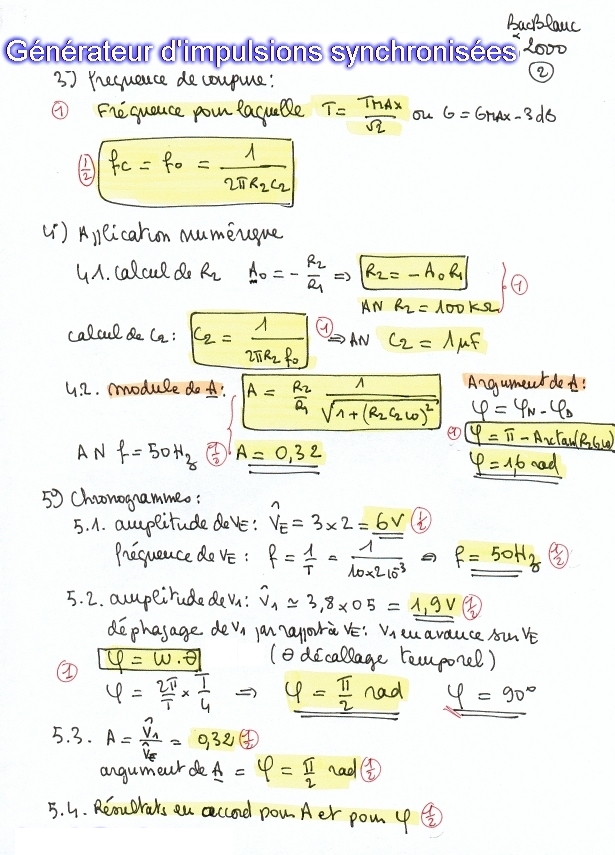 BacBlanc
Générateur d'impulsions synchronisées
2000
2
3°) fréquence de coupure :
1 Fréquence pour laquelle T = TMAX/√2 ou G = GMAX - 3dB
1/2 fc = fo = 1/(2πR2C2)
4°) Application numérique
4.1. calcul de R2 Ao = - R2/R1 => R2 = - Ao R1 1
AN R2 = 100 kΩ
calcul de C2 : C2 = 1/(2πR2 fo) 1 => AN C2 = 1µF
4.2. module de A : A = R2/R1 1/√(1+(R2C2ω)²) Argument de A :
φ = φN - φD
1 φ = π - Arctan(R2C2ω)
AN f = 50Hz 1/2 A = 0,32 φ = 1,6 rad
5°) Chronogrammes :
5.1. amplitude de VE : V̂E = 3 x 2 = 6V 1/2
fréquence de VE : f = 1/T = 1/(10x2 10⁻³) => f = 50Hz 1/2
5.2. amplitude de V1 : V̂1 ≃ 3,8 x 05 = 1,9V 1/2
déphasage de V1 par rapport à VE : V1 en avance sur VE
1 φ = ω.θ (θ décallage temporel)
φ = 2π/T x T/4 => φ = π/2 rad φ = 90°
5.3. A = V̂1/V̂E = 0,32 1/2
argument de A = φ = π/2 rad 1/2
5.4. Résultats en accord pour A et pour φ 1/2